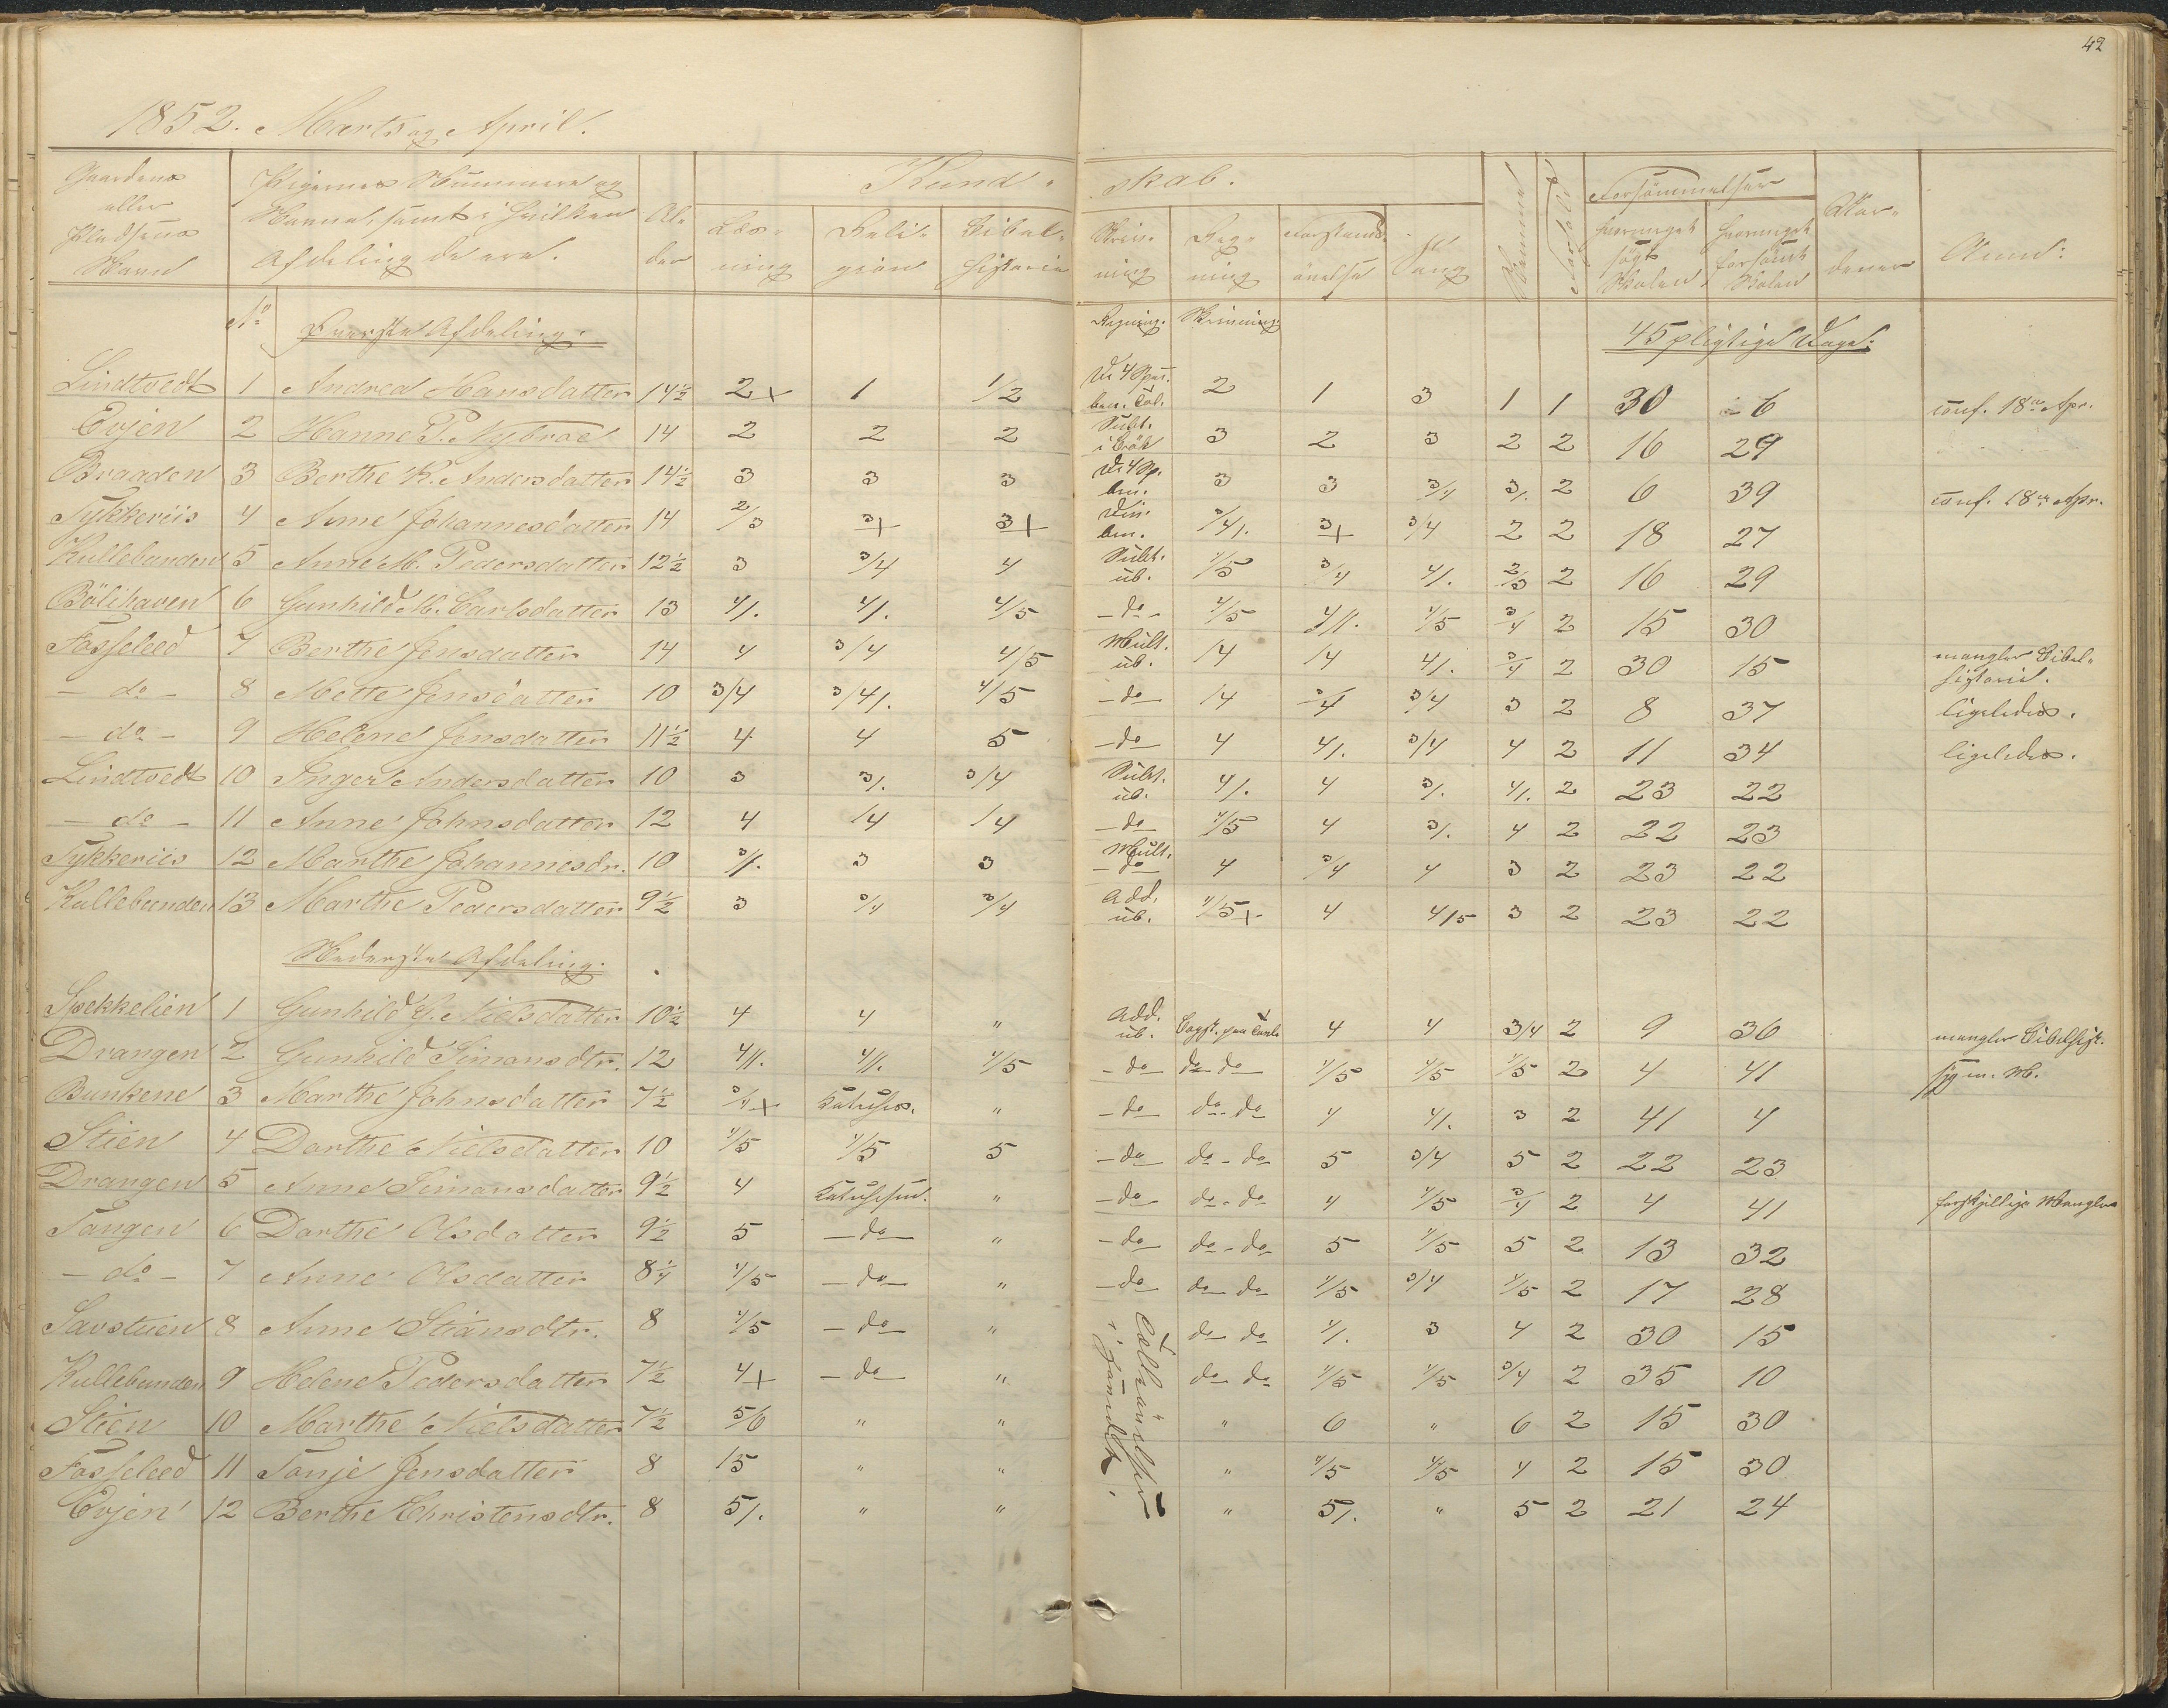 42
1852. Marts og April.
Gaardens eller Pladsens Navn
Pigernes Nummere og Navne, samt i hvilken Afdeling de ere.
Al-der
Kund-skab.
Læs-ning
Reli-gion
Bibel-historie
Skriv-ning
Reg-ning
Forstands-øvelse
Sang
Nemme
Forhold
Forsømmelser
hvormeget søgt Skolen
hvormeget forsømt Skolen
Anm:
No Øverste Afdeling. Regning. Skrivning. 45 pligtige Dage.
Lindtvedt 1 Andrea Hansdatter 14½ 2+ 1 1/2 De 4 Spec. ben. Tal. 2 1 3 1 1 30 6 conf. 18de Apr.
Evjen 2 Hanne P. Nybroe 14 2 2 2 Subt. i Brök 3 2 3 2 2 16 29
Braaden 3 Berthe K. Andersdatter 14½ 3 3 3 De 4 Sp. ben. 3 3 3/4 3/. 2 6 39 conf. 18de Apr.
Tykkeriis 4 Anne Johannesdatter 14 2/3 3+ 3+ Div. ben. 3/4/. 3+ 3/4 2 2 18 27
Kullebunden 5 Anne M. Pedersdatter 12½ 3 3/4 4 Subt. ub. 4/5 3/4 4/. 2/3 2 16 29
Bölihaven 6 Gunhild M. Carlsdatter 13 4/. 4/. 4/5 - do - 4/5 4//. 4/5 3/4 2 15 30
Fosseleed 7 Berthe Jensdatter 14 4 3/4 4/5 Mult. ub. /4 /4 4/. 3/4 2 30 15 mangler Bibel-historie.
- do - 8 Mette Jensdatter 10 3/4 3/4/. 4/5 - do - /4 3/4 3/4 3 2 8 37 ligeledes.
- do - 9 Helene Jensdatter 11½ 4 4 5 - do - 4 4/. 3/4 4 2 11 34 ligeledes.
Lindtvedt 10 Inger Andersdatter 10 3 3/. 3/4 Subt. ub. 4/. 4 3/. 4/. 2 23 22
- do - 11 Anne Johnsdatter 12 4 /4 /4 - do - 4/5 4 3/. 4 2 22 23
Tykkeriis 12 Marthe Johannesdr. 10 3/. 3 3 Mult. - do - 4 3/4 4 3 2 23 22
Kullebunden 13 Marthe Pedersdatter 9½ 3 3/4 3/4 Add. ub. 4/5+ 4 4/5 3 2 23 22
Nederste Afdeling.
Spekkelien 1 Gunhild G. Nielsdatter 10½ 4 4 " Add. ub. Bogst. paa Tavle 4 4 3/4 2 9 36 mangler Bibelhist.
Drangen 2 Gunhild Simonsdtr. 12 4//. 4//. 4/5 - do - do do 4/5 4/5 4/5 2 4 41
Bunkene 3 Marthe Johnsdatter 7½ 3/4+ " - do - do - do 4 4/. 3 2 41 4
Stien 4 Dorthe Nielsdatter 10 4/5 4/5 5 - do - do - do 5 3/4 5 2 22 23
Drangen 5 Anne Simonsdatter 9½ 4 " - do - do - do 4 4/5 3/4 2 4 41 forskjellige Mangler
Tangen 6 Dorthe Olsdatter 9½ 5 - do - " - do - do - do 5 4/5 5 2 13 32
- do - 7 Anne Olsdatter 8¼ 4/5 - do - " - do - do do 4/5 3/4 4/5 2 17 28
Savstuen 8 Anne Stiansdtr. 8 4/5 - do - " do do 4/. 3 4 2 30 15
Kullebunden 9 Helene Pedersdatter 7½ 4+ - do - " do do 4/5 4/5 3/4 2 35 10
Stien 10 Marthe Nielsdatter 7½ 5/6 " " " 6 " 6 2 15 30
Fosseleed 11 Tonje Jensdatter 8 /5 " " " 4/5 4/5 4 2 15 30
Evjen 12 Berthe Christensdtr. 8 5/. " " " 5/. " 5 2 21 24